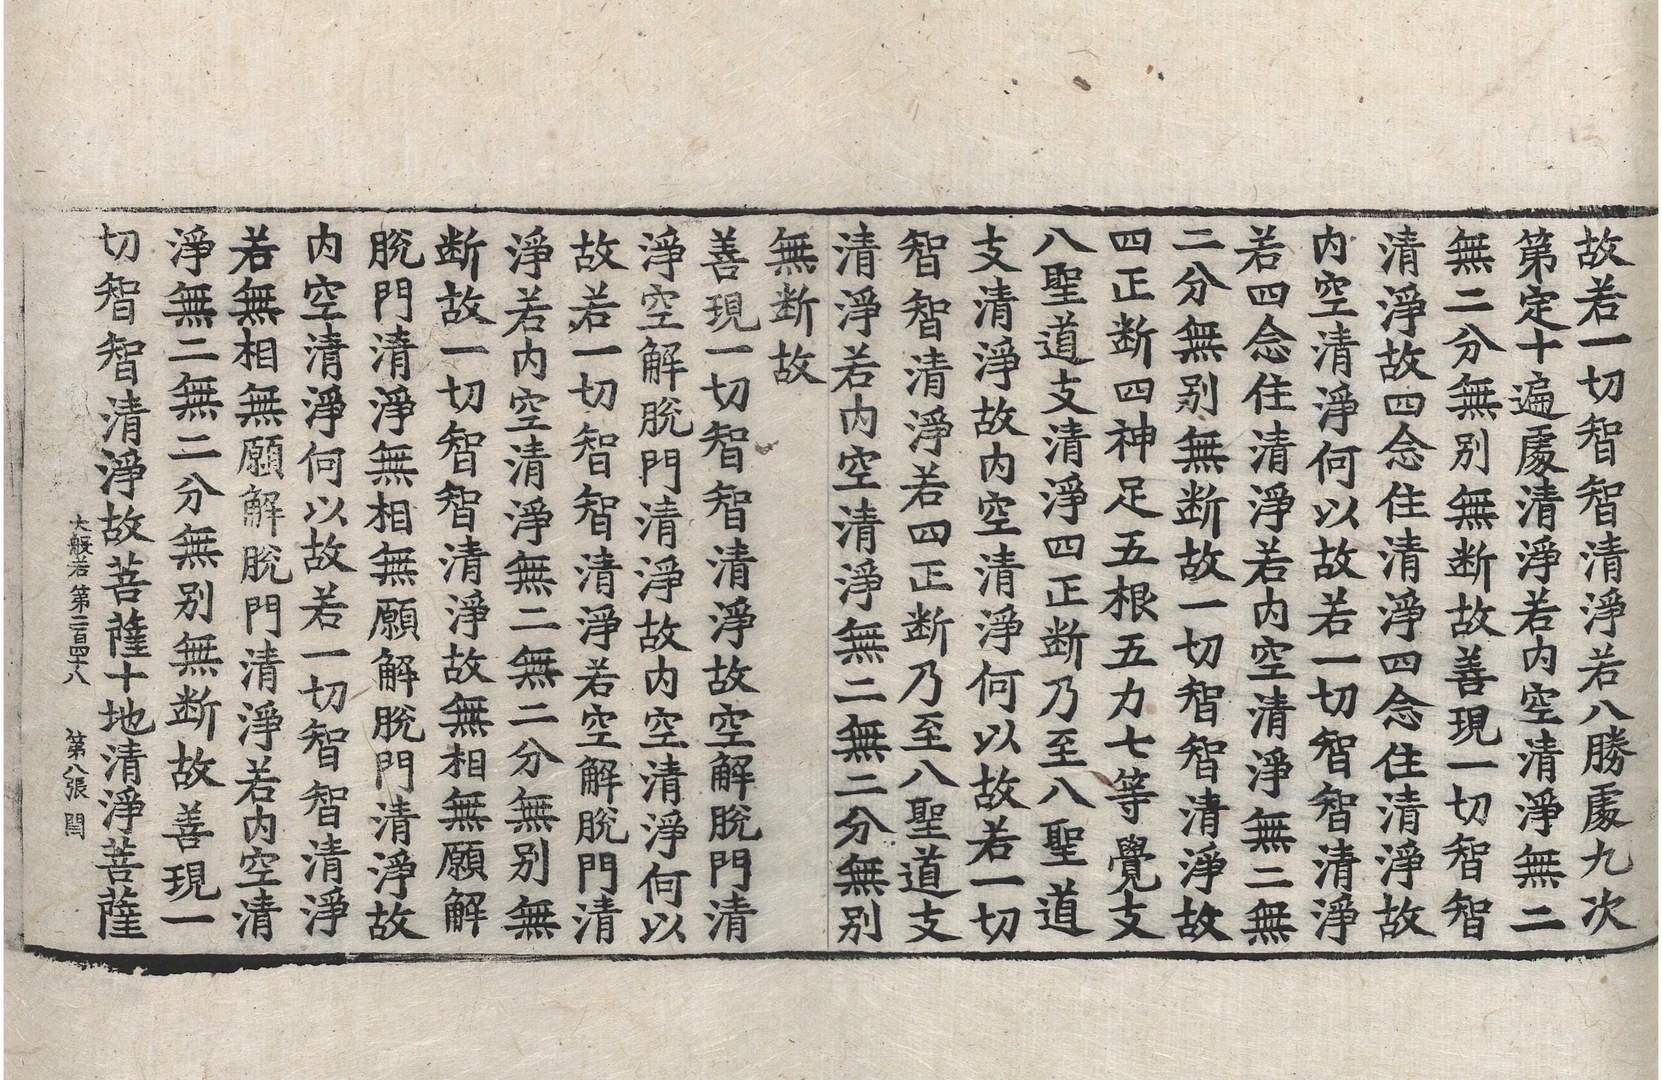 故若一切智智清淨若八勝處九次
第定十遍處清淨若内空清淨無二
無二分無别無断故善現一切智智
清淨故四念住清淨四念住清淨故
内空清淨何以故若一切智智清淨
若四念住清淨若内空清淨無二無
二分無别無断故一切智智清淨故
四正断四神足五根五力七等覺支
八聖道支清淨四正断乃至八聖道
支清淨故内空清淨何以故若一切
智智清淨若四正断乃至八聖道支
清淨若内空清淨無二無二分無别
無断故
善現一切智智清淨故空解脫門清
淨空解脫門清淨故内空清淨何以
故若一切智智清淨若空解脫門清
淨若内空清淨無二無二分無别無
断故一切智智清淨故無相無願解
脫門清淨無相無願解脫門清淨故
内空清淨何以故若一切智智清淨
若無相無願解脫門清淨若内空清
淨無二無二分無别無断故善現一
切智智清淨故菩薩十地清淨菩薩
大般若第二百四十八 第八張 閏